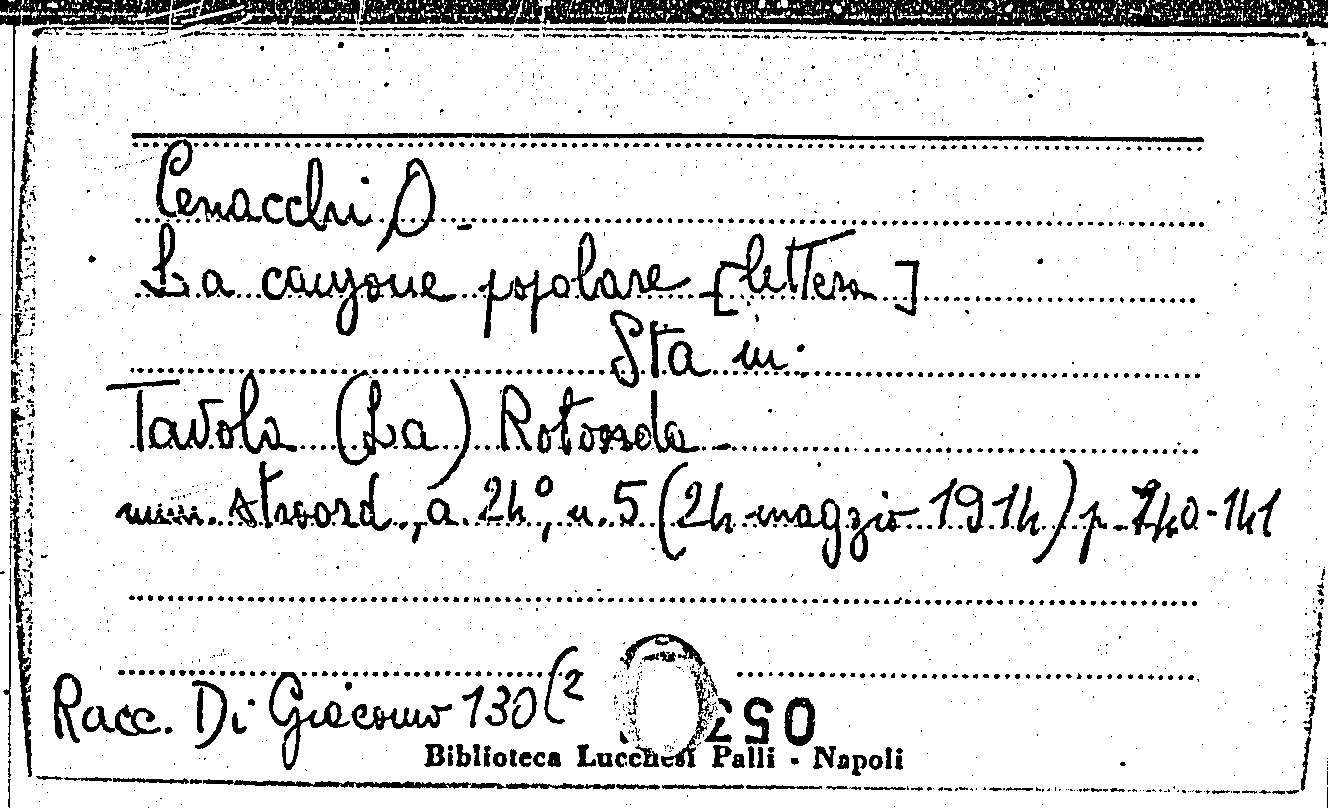 Cenacchi O. -
La canzone popolare [lettera]
Sta in:
Tavola (La) Rotonda -
num. straord., a. 24°, n. 5 (24 maggio 1914) p. 140-141
Racc. Di Giacomo 130(2
Biblioteca Lucchesi Palli - Napoli